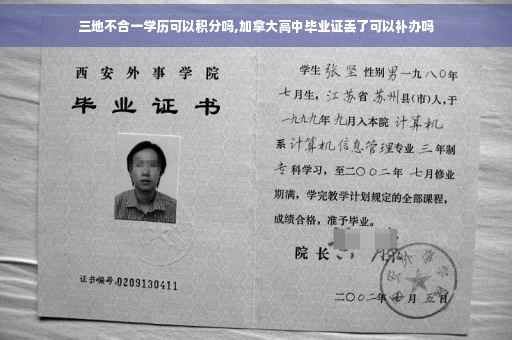 三地不合一学历可以积分吗,加拿大高中毕业证丢了可以补办吗
西安外事学院
毕业证书
证书编号:0209130411
学生 张坚 性别男 一九八〇年
七月生，江苏省 苏州县(市)人,于
一九九九年 九月入本院 计算机
系 计算机信息管理专业 三 年制
专 科学习，至二〇〇二年 七月修业
期满，学完教学计划规定的全部课程，
成绩合格，准予毕业。
院 长
二〇〇二年 月 五日